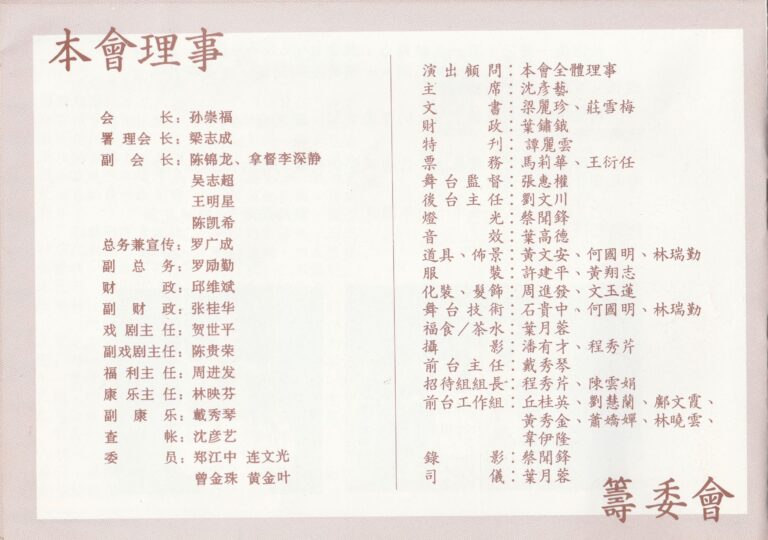 本會理事
会长：孙崇福
署理会长：梁志成
副会长：陈锦龙、拿督李深静
吴志超
王明星
陈凯希
总务兼宣传：罗广成
副总务：罗励勤
财政：邱维斌
副财政：张桂华
戏剧主任：贺世平
副戏剧主任：陈贵荣
福利主任：周进发
康乐主任：林映芬
副康乐：戴秀琴
查帐：沈彦艺
委员：郑江中 连文光
曾金珠 黄金叶
演出顧問：本會全體理事
主席：沈彥藝
文書：梁麗珍、莊雪梅
財政：葉鏽鉞
特刊：譚麗雲
票務：馬莉華、王衍任
舞台監督：張惠權
後台主任：劉文川
燈光：蔡聞鋒
音效：葉高德
道具、佈景：黃文安、何國明、林瑞勤
服裝：許建平、黃翔志
化裝、髮飾：周進發、文玉蓮
舞台技術：石貴中、何國明、林瑞勤
福食／茶水：葉月蓉
攝影：潘有才、程秀芹
前台主任：戴秀琴
招待組組長：程秀芹、陳雲娟
前台工作組：丘桂英、劉慧蘭、鄺文霞、
黃秀金、蕭嬌嬋、林曉雲、
韋伊隆
錄影：蔡聞鋒
司儀：葉月蓉
籌委會